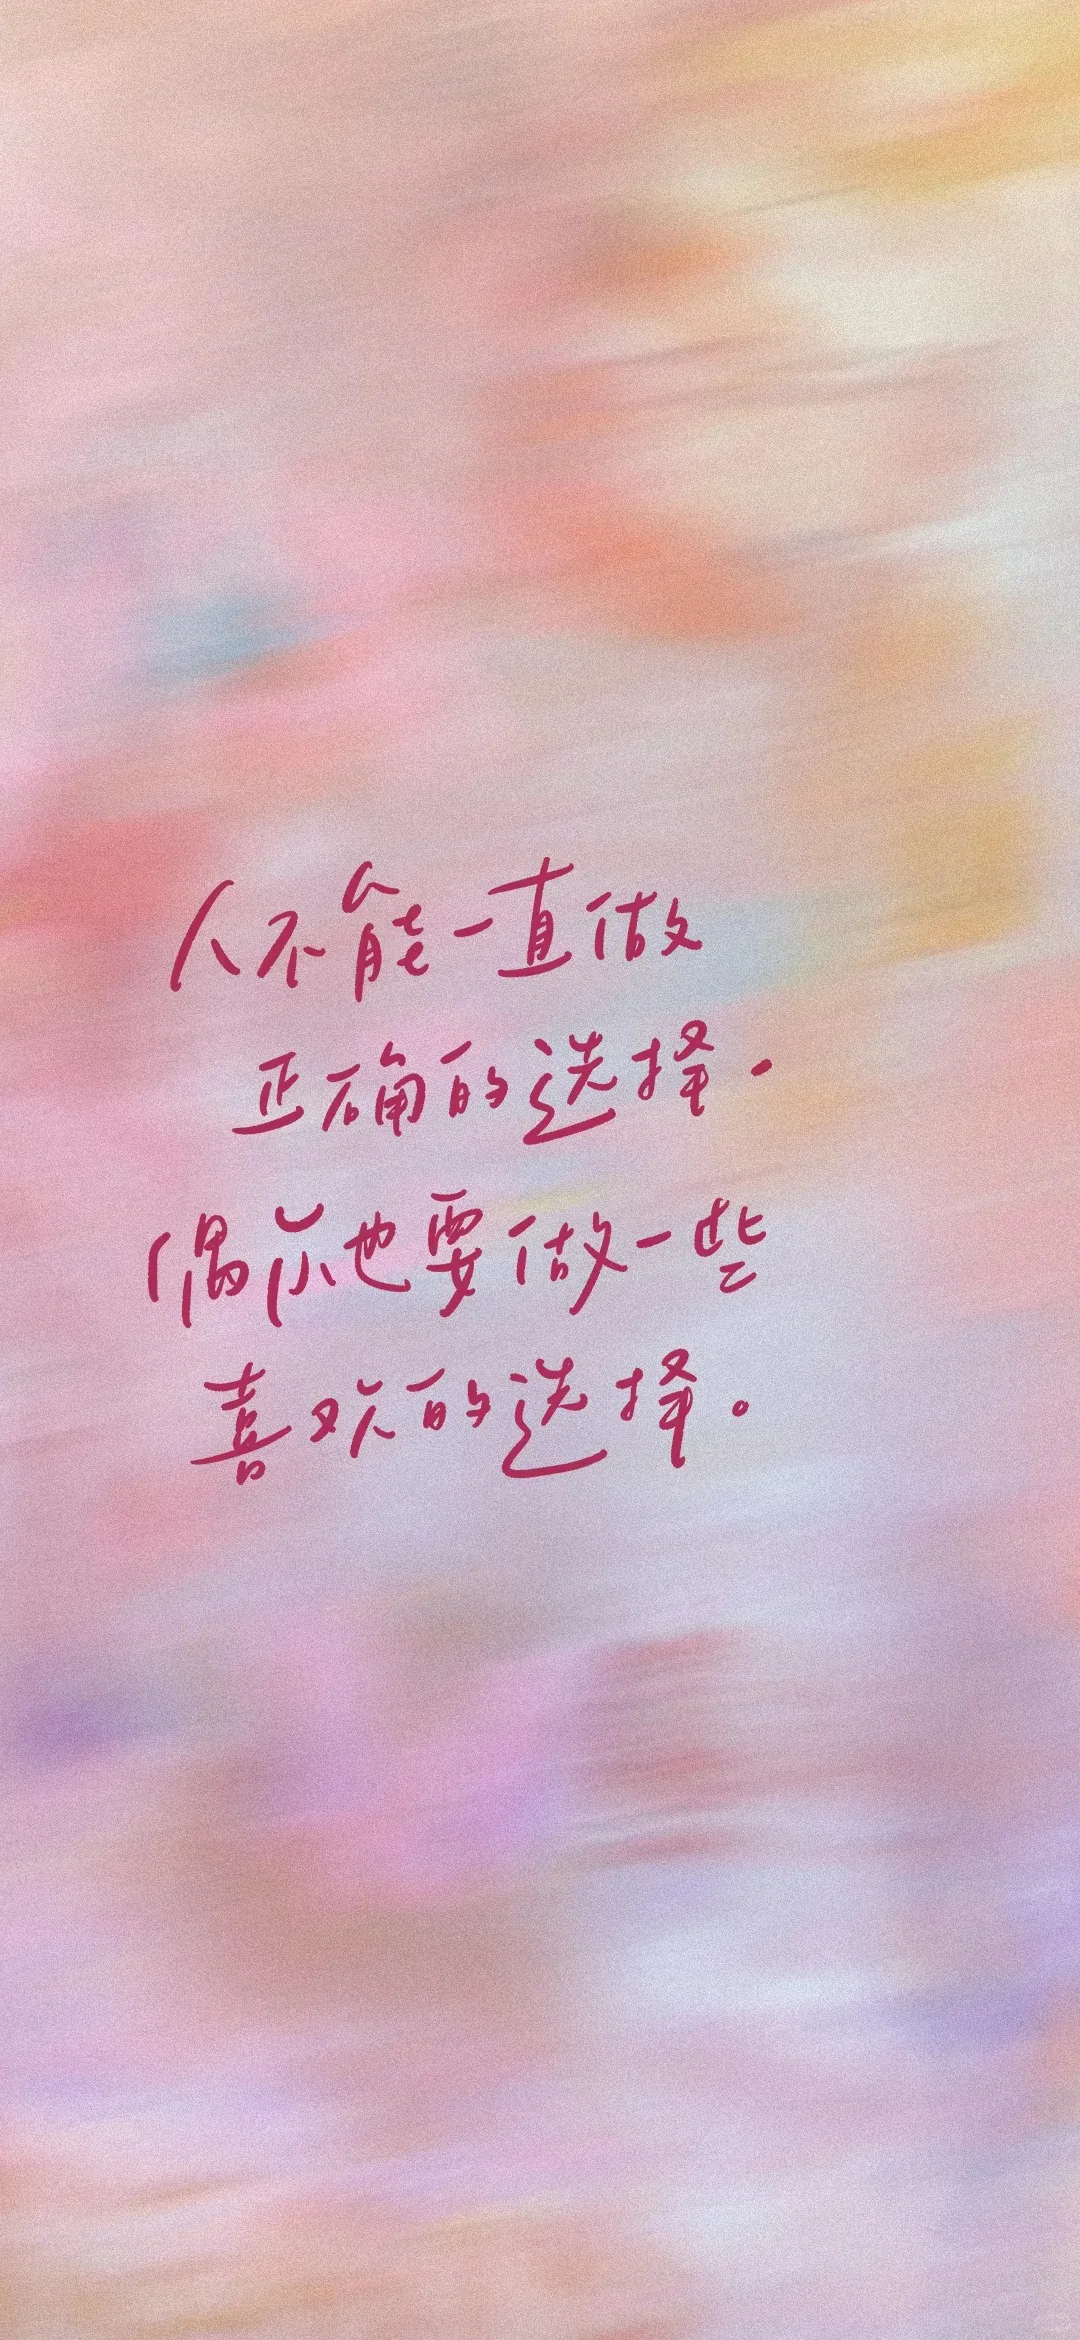 人不能一直做
正确的选择.
偶尔也要做一些
喜欢的选择。